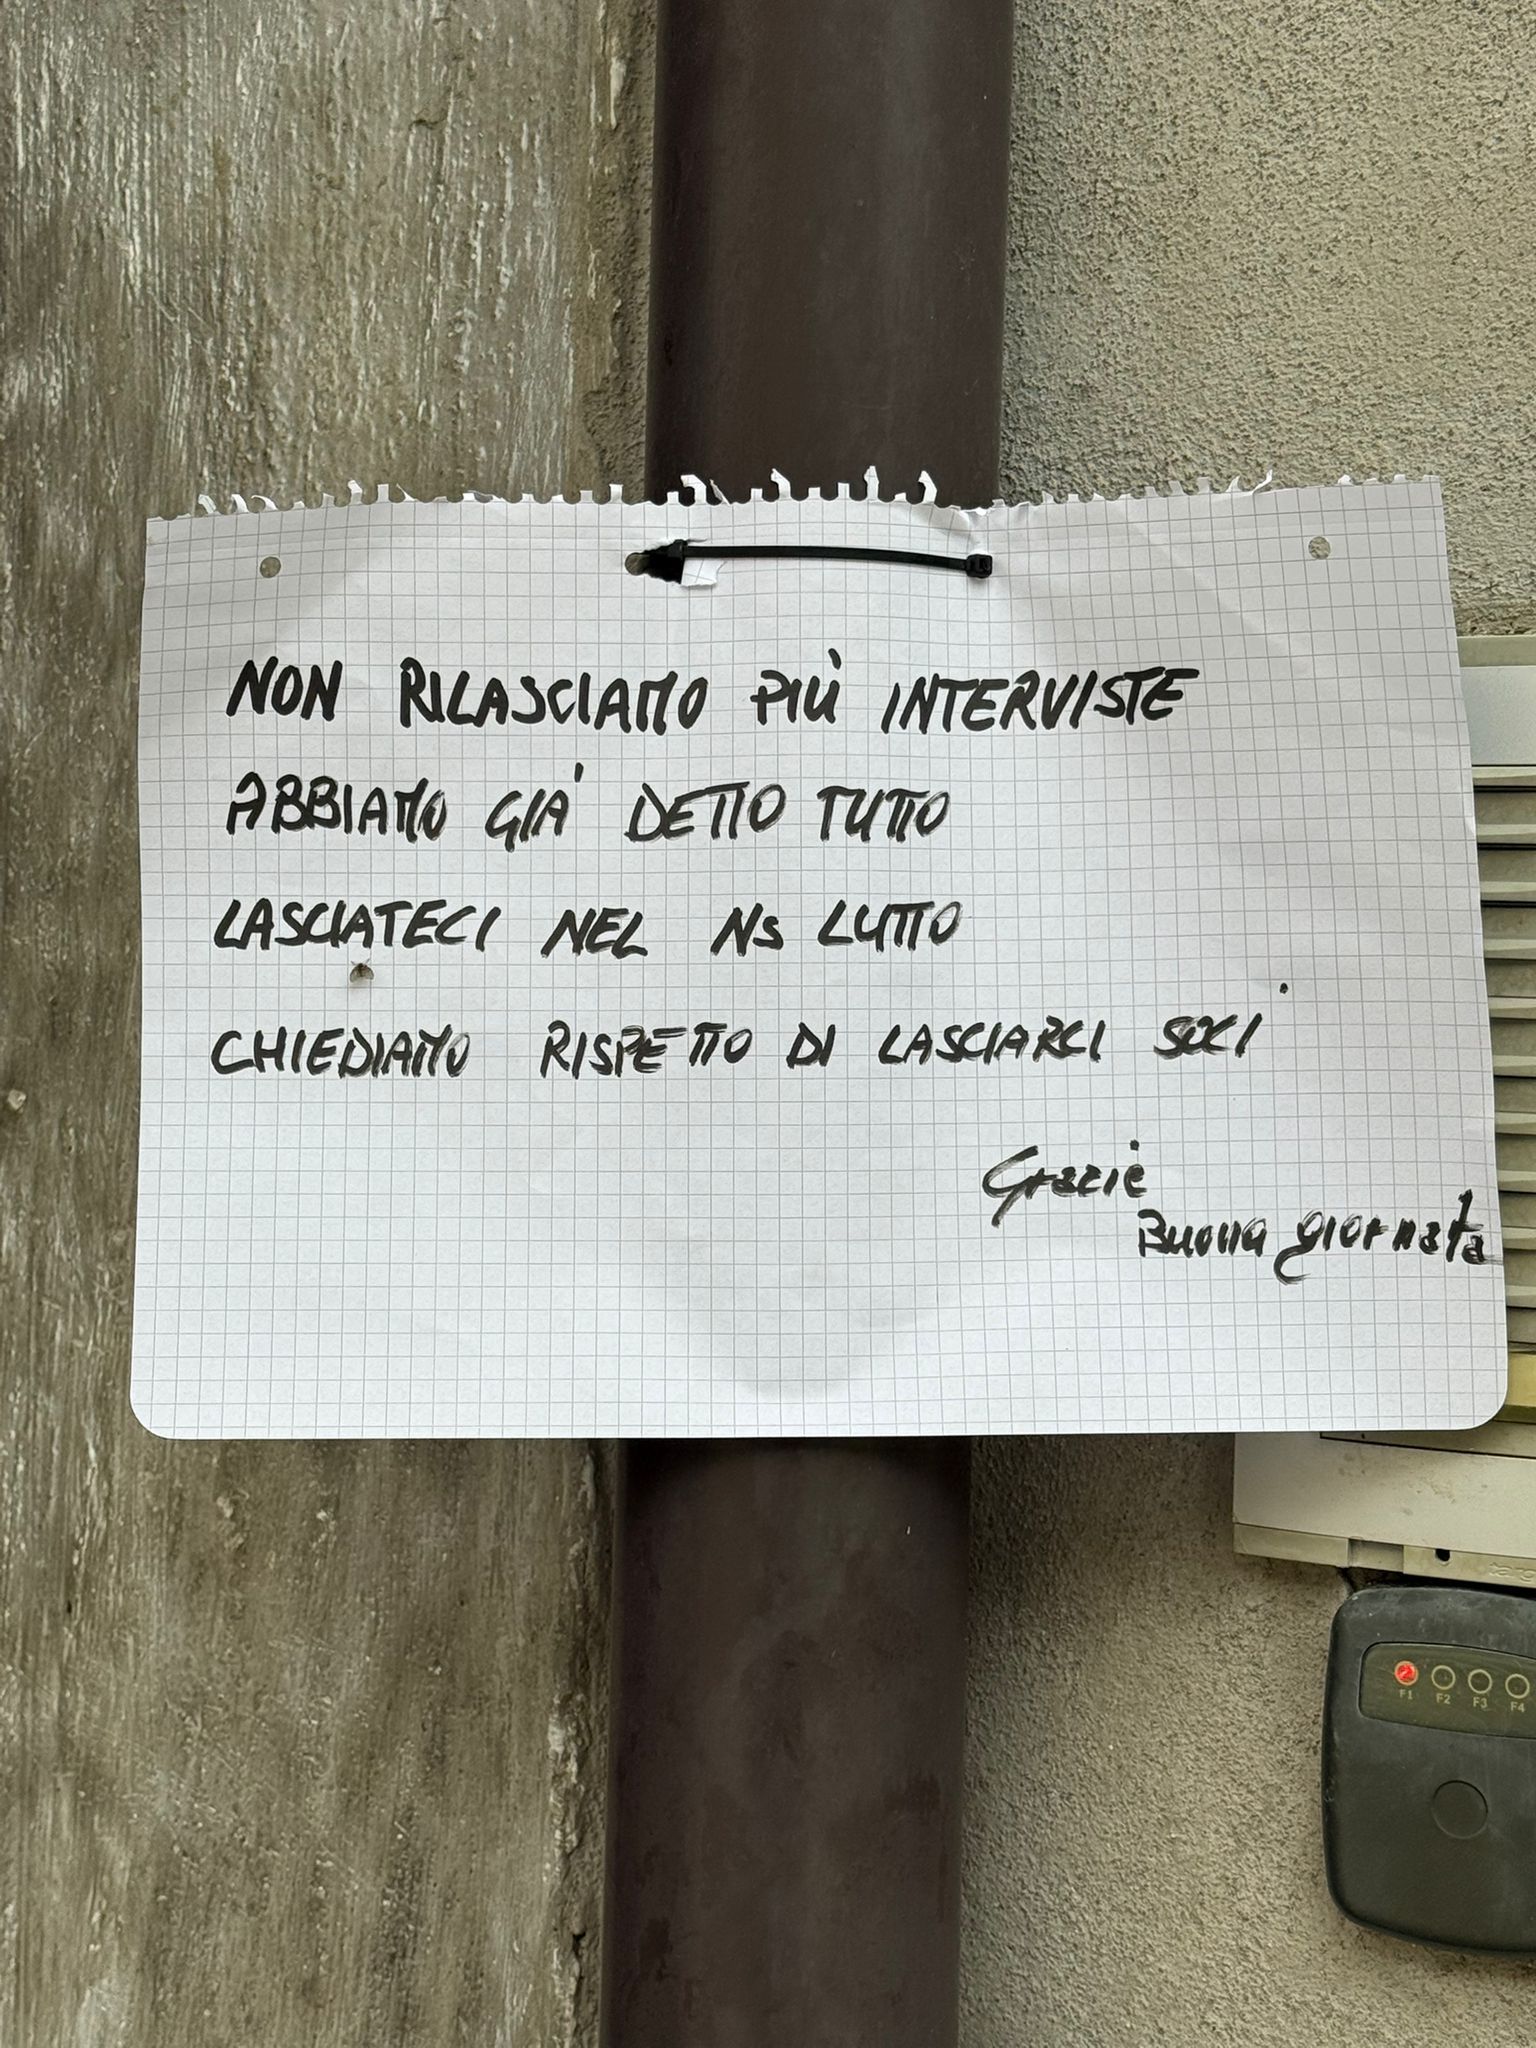 NON RILASCIAMO PIÙ INTERVISTE
ABBIAMO GIÀ DETTO TUTTO
LASCIATECI NEL NS LUTTO
CHIEDIAMO RISPETTO DI LASCIARCI SOLI
Grazie
Buona giornata
F1 F2 F3 F4